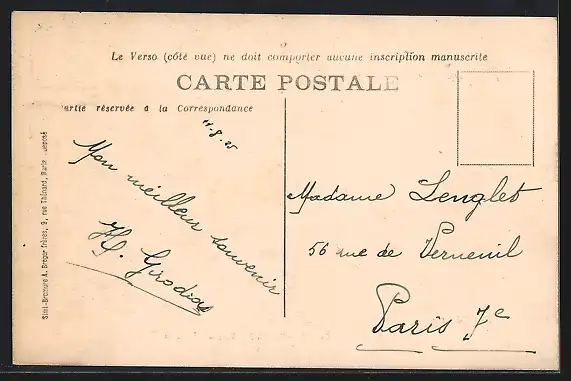 Le Verso (côté vue) ne doit comporter aucune inscription manuscrite
CARTE POSTALE
artie réservée à la Correspondance
11.8.25
Mon meilleur souvenir
H. Girodias
Madame Lenglet
56 rue de Verneuil
Paris 7e
Simi-Bromure A. Breger frères, 9, rue Thénard, Paris